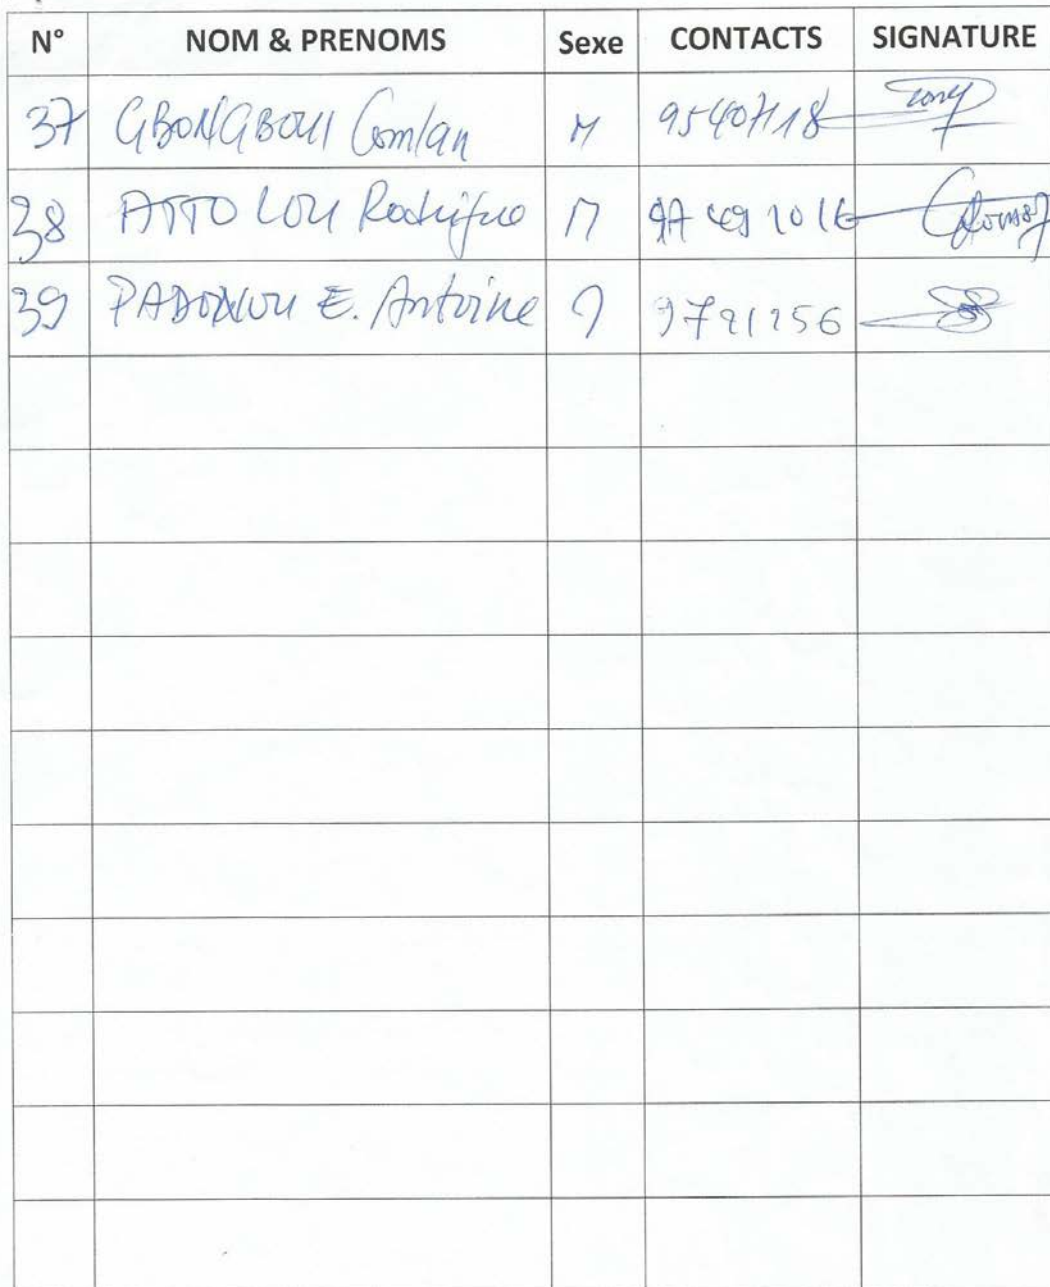 N° NOM & PRENOMS Sexe CONTACTS SIGNATURE
37 GBONGBOUI Comlan M 95407118
38 ATTOLOU Rodrigue M 97 49 10 16
39 PADONOU E. Antoine